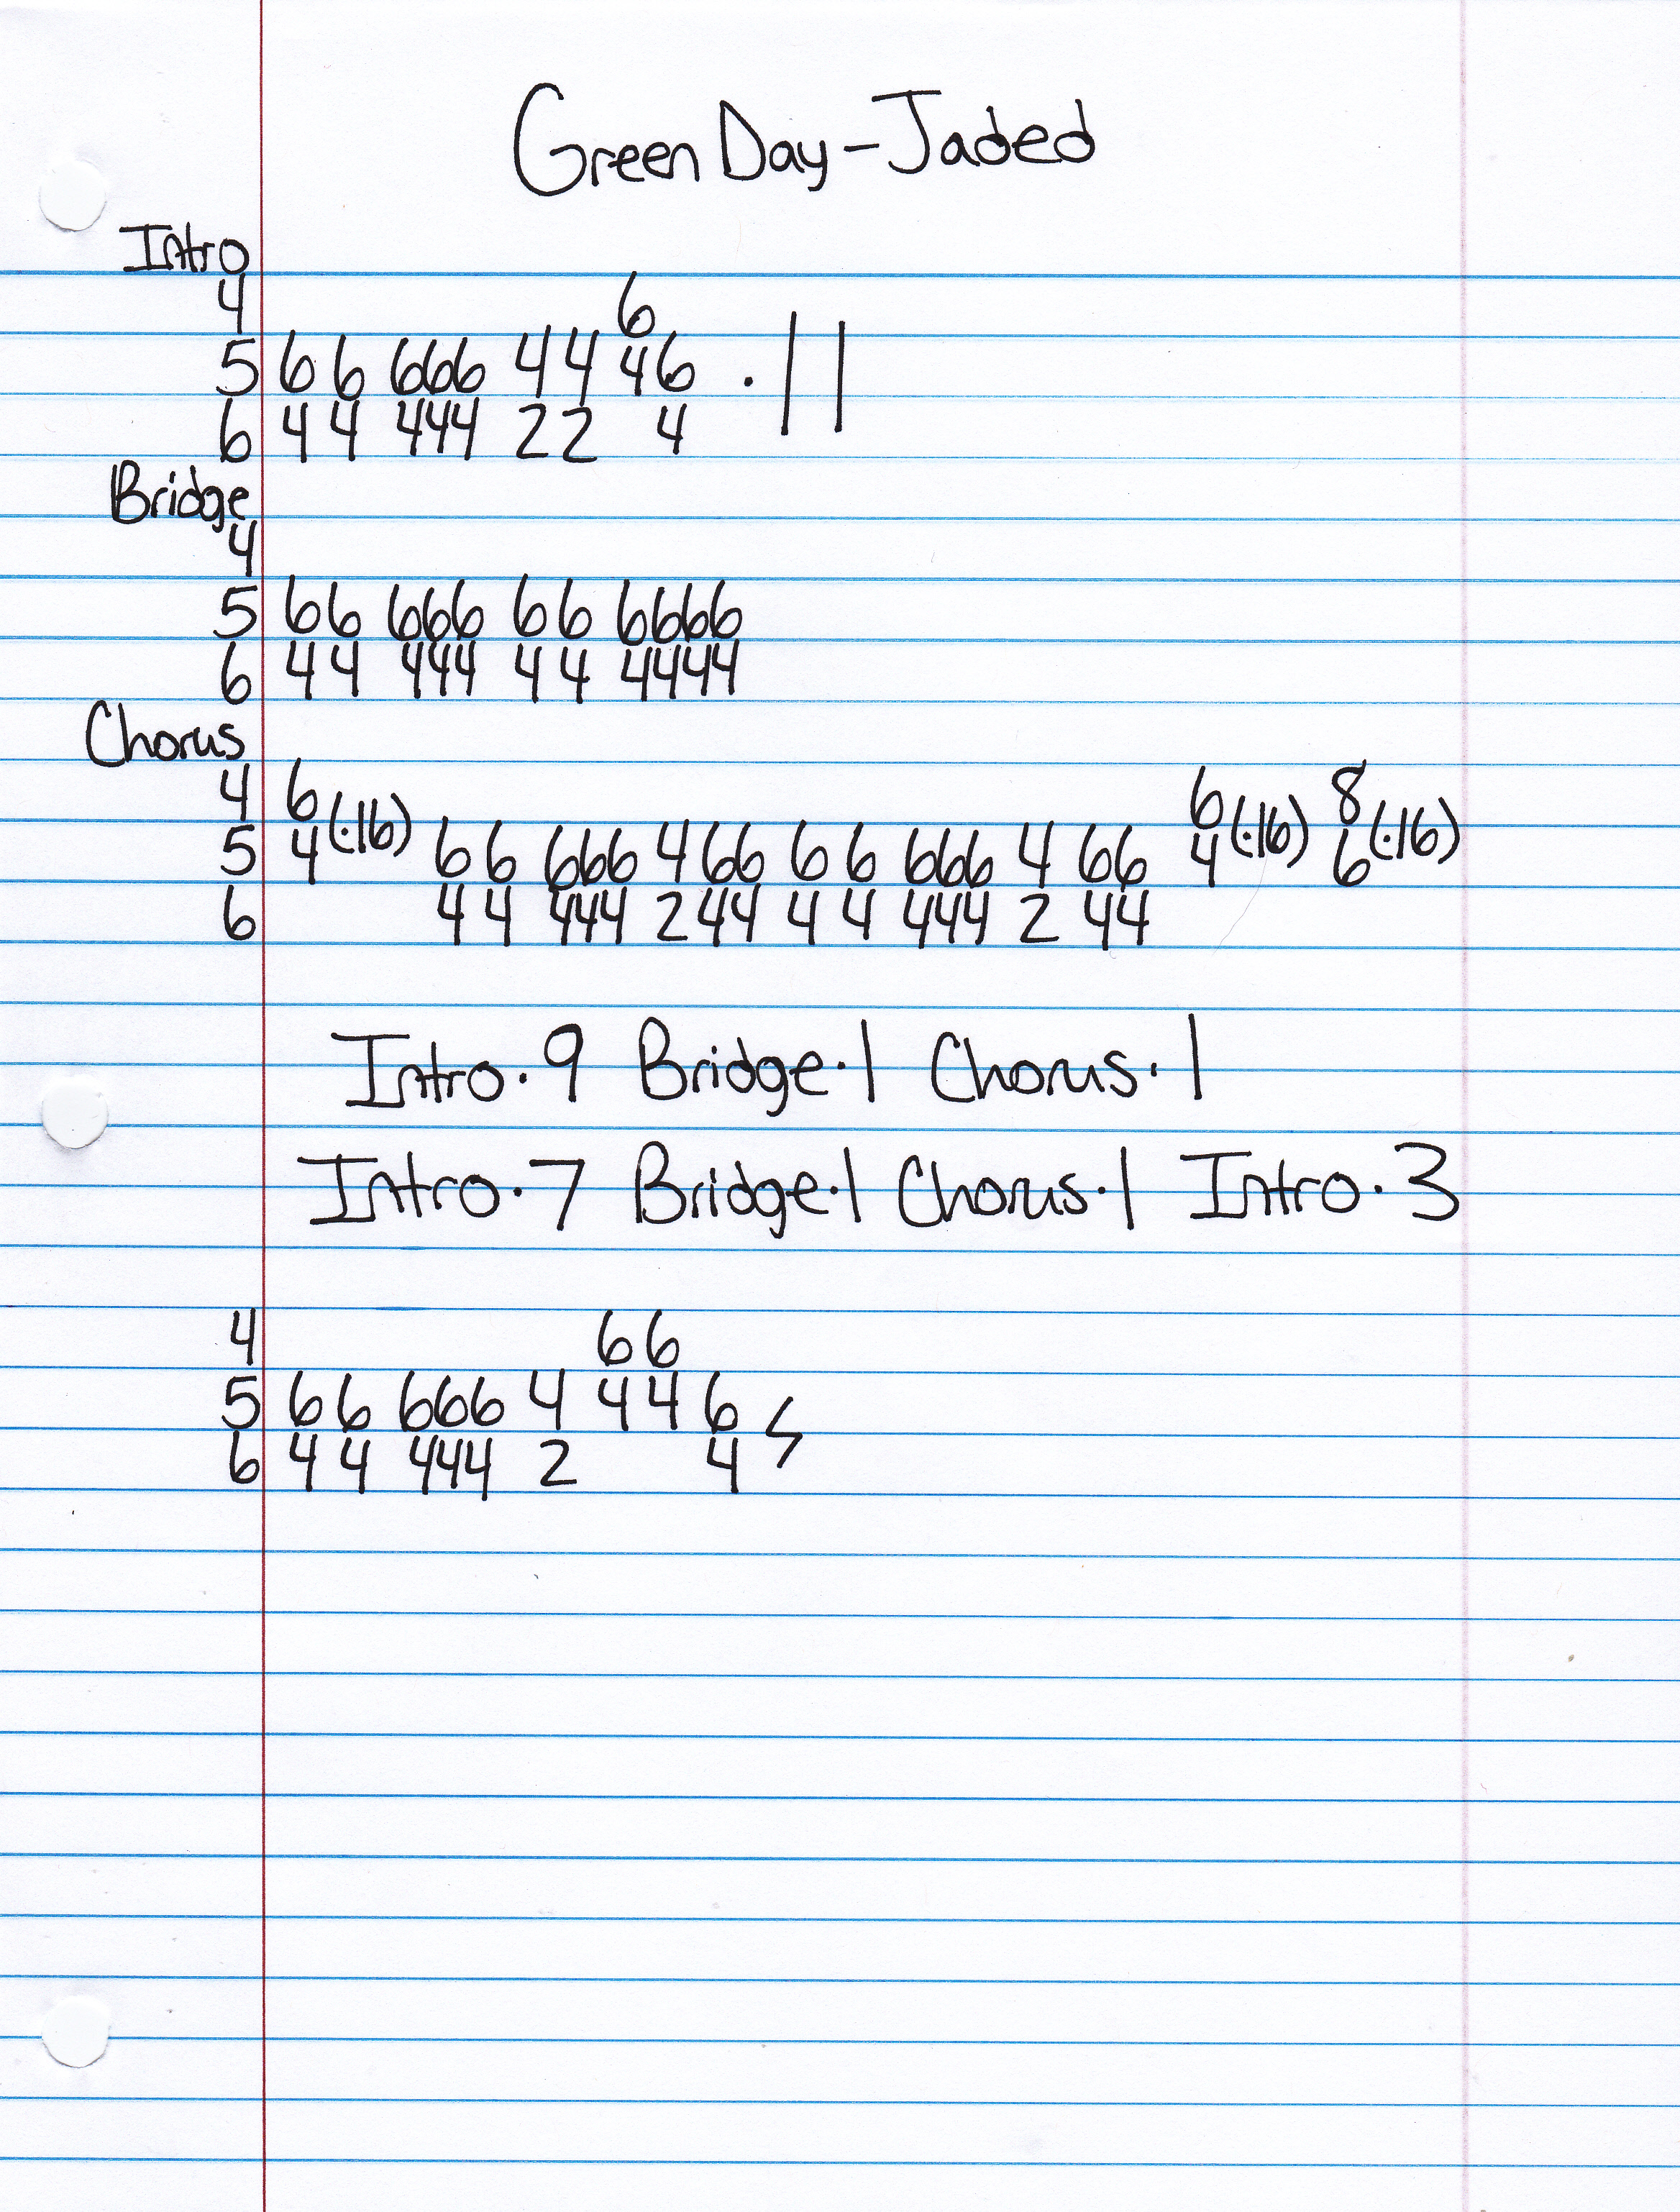 Green Day - Jaded
Intro
4 6
5 6 6 666 4 4 4 6 . | |
6 4 4 444 2 2 4
Bridge
4
5 6 6 666 6 6 6666
6 4 4 444 4 4 4444
Chorus
4 6 6 8
5 4 (·16) 6 6 666 4 66 6 6 666 4 66 4 (·16) 6 (·16)
6 4 4 444 2 44 4 4 444 2 44
Intro·9 Bridge·1 Chorus·1
Intro·7 Bridge·1 Chorus·1 Intro·3
4 6 6
5 6 6 666 4 4 4 6
6 4 4 444 2 4